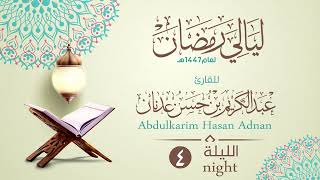 ليالي رمضان
لعام 1447هـ
للقارئ
عبدالكريم بن حسن عدنان
Abdulkarim Hasan Adnan
الليلة
night
٤